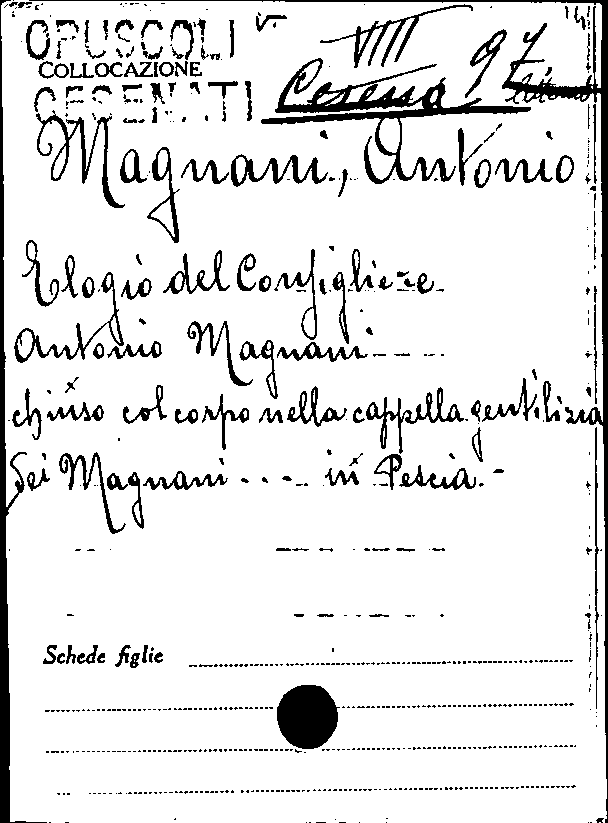 OPUSCOLI VIII 97
COLLOCAZIONE
CESENATI Cesena
Magnani, Antonio
Elogio del Consigliere
Antonio Magnani
chiuso col corpo nella cappella gentilizia
dei Magnani . . . in Pescia. -
Schede figlie